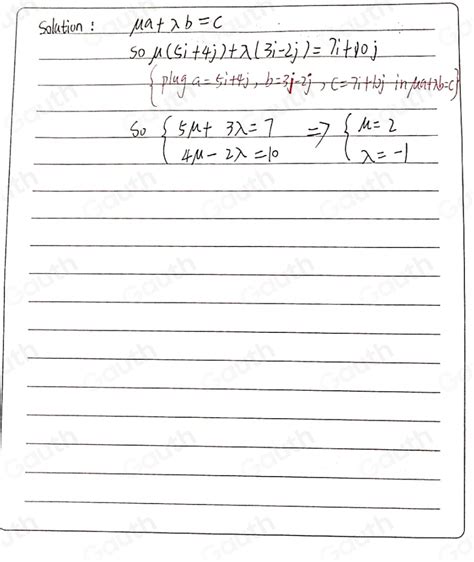 Solution : μa + λb = c
So μ(5i+4j)+λ(3i-2j)=7i+10j
{plug a=5i+4j, b=3j-2j, c=7i+10j in μa+λb=c}
So { 5μ+ 3λ=7 => { μ=2
4μ- 2λ=10 λ=-1